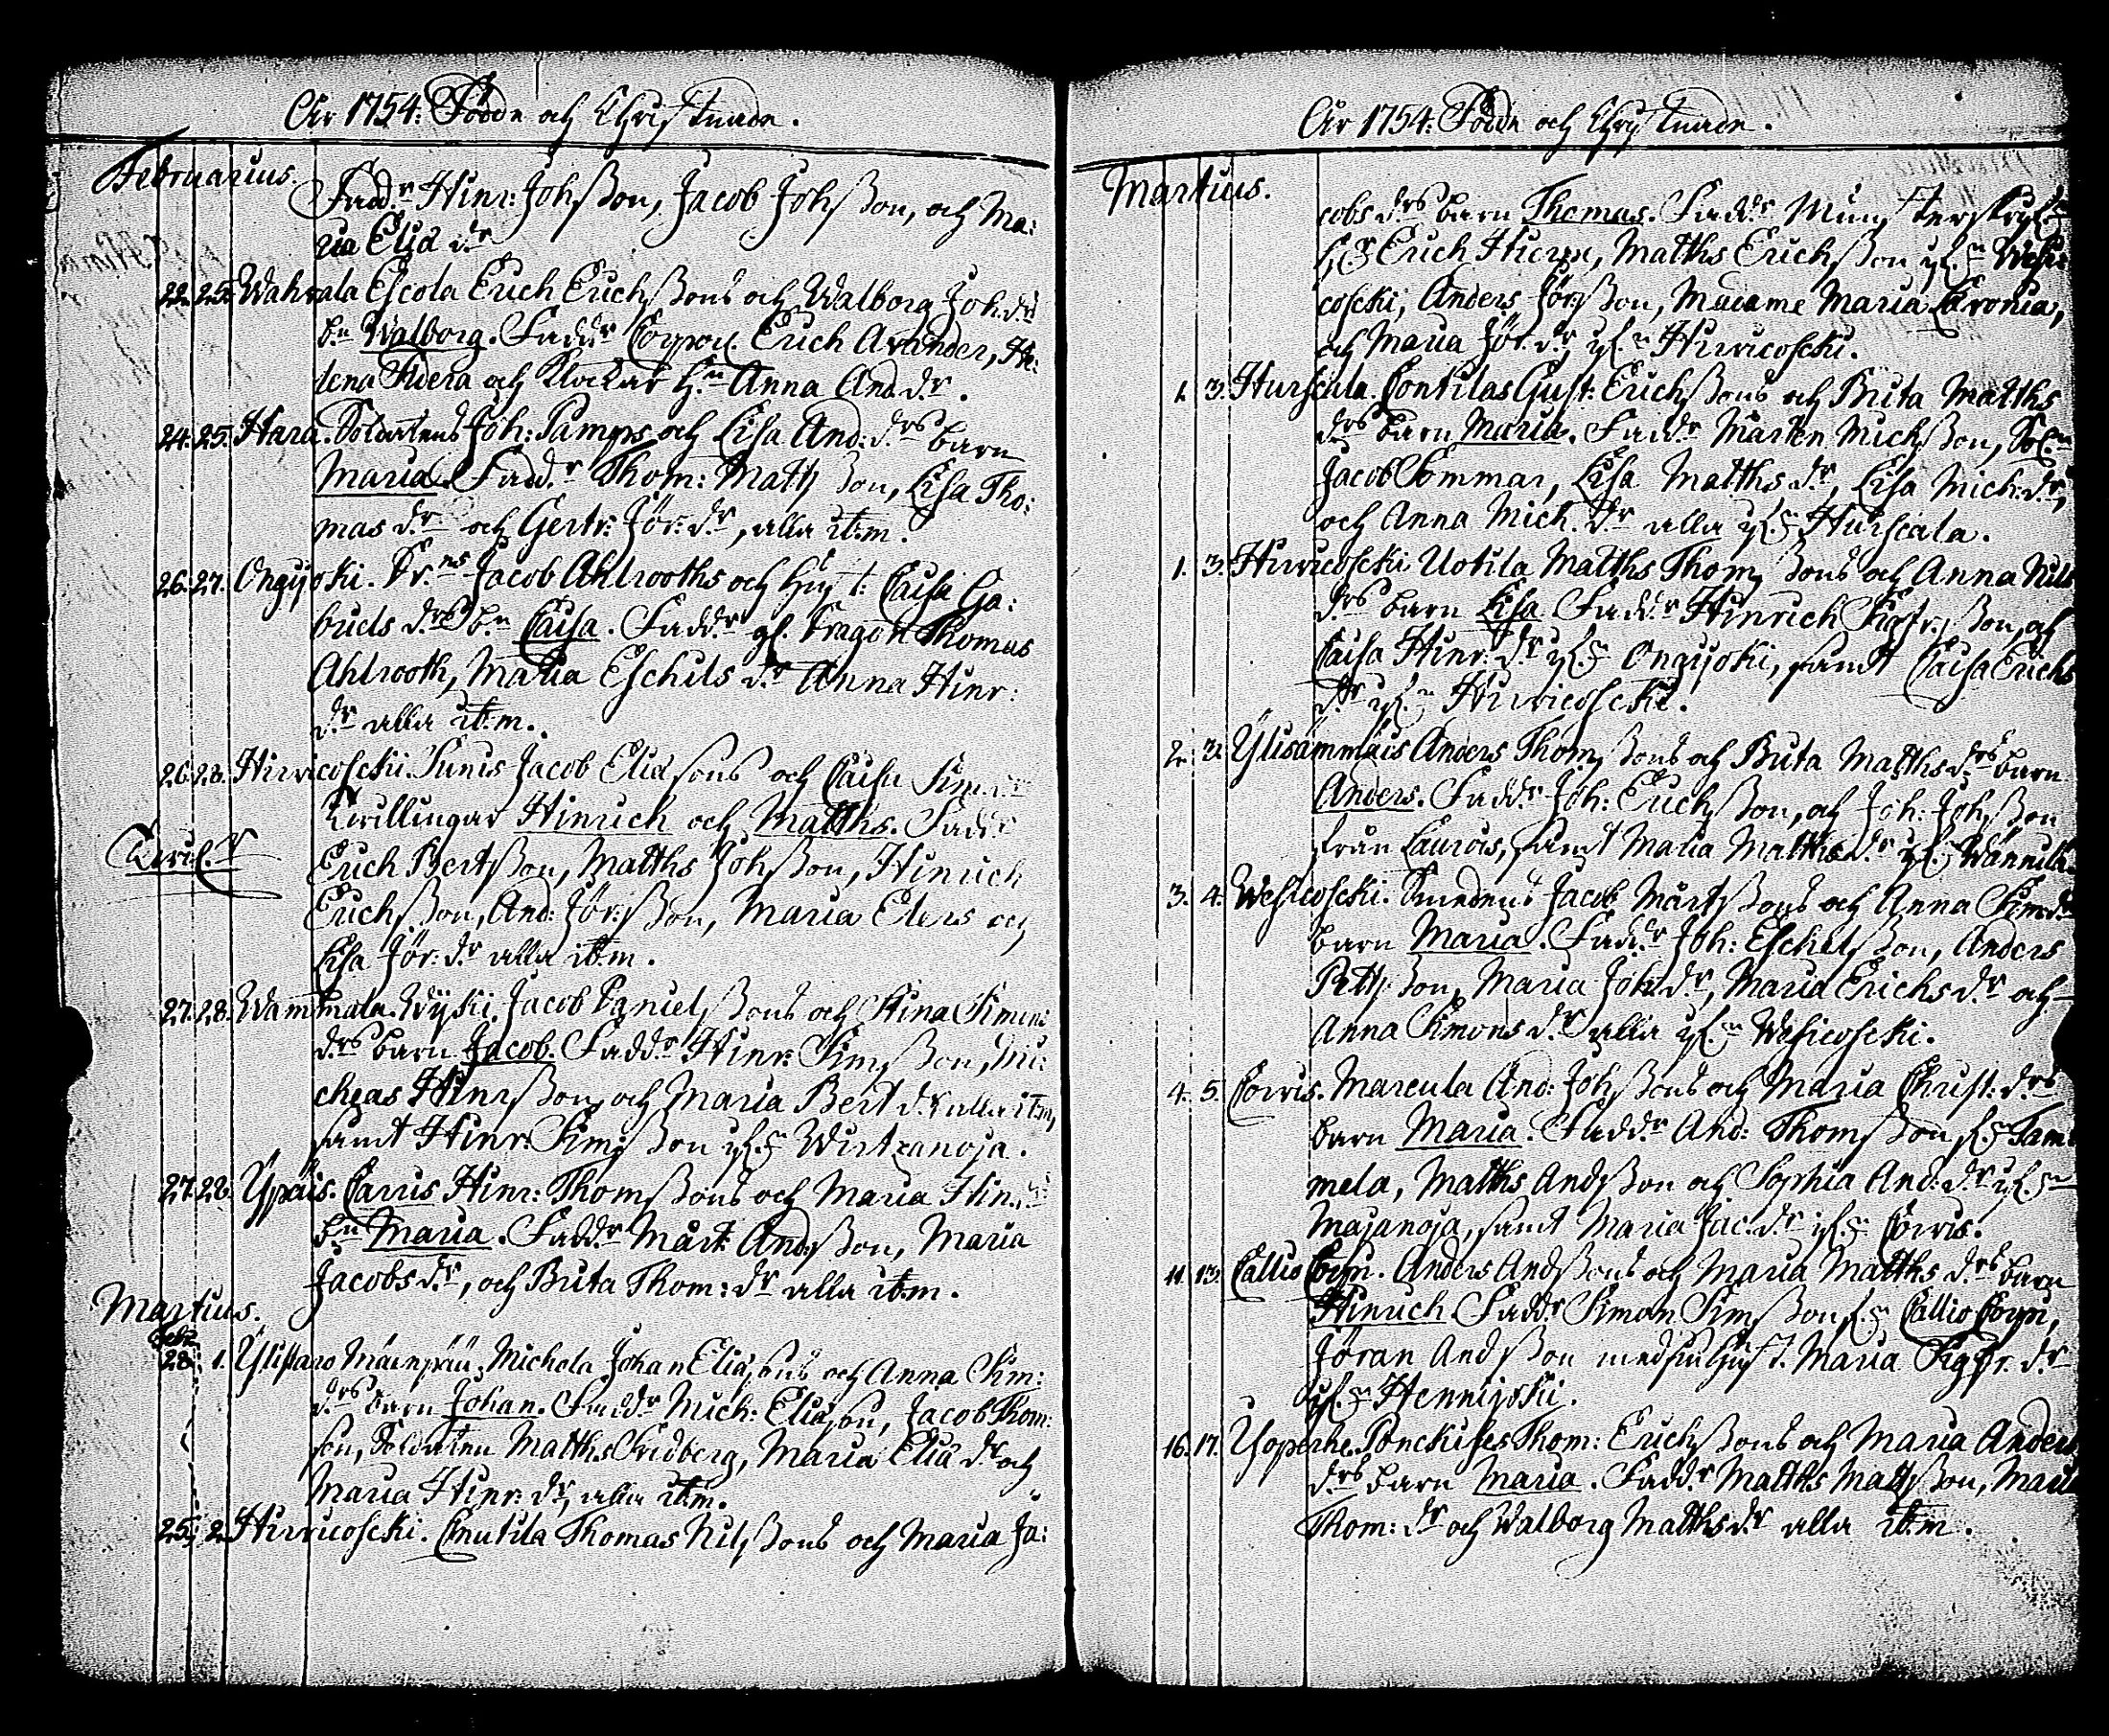 Åhr 1754. Födde och Christnade.
Februarius.
Fadd:r Hinr: Johsson, Jacob Johsson, och Ma:
ria Elia d:r
22. 25. Wahvala Escola Erich Erichssons och Walborg Joh:d:rs
b:n Walborg. Fadd:r Corporl. Erich Arander, He:
lena Floera och Klockar H:n Anna And.d:r.
24. 25. Hara. Soldatens Joh: Pamps och Lisa And: d:rs barn
Maria. Fadd:r Thom: Mattsson, Lisa Tho:
mas d:r och Gertr: Jör: d:r, alla it:m.
26. 27. Ongijoki. Dr:ns Jacob Ahlrooths och Hust: Caisa Ga:
briels d:rs b:n Caisa. Fadd:r gl. Dragon Thomas
Ahlrooth, Maria Eschils d:r Anna Hinr:
d:r alla it:m.
26. 28. Hirvicoscki Junis Jacob Eliæ sons och Caisa Sim:
Tvillingar Hinrich och Matths. Fadd:r
Erich Bertsson, Matths Johsson, Hinrich
Erichsson, And: Jörsson, Maria Elers och
Lisa Jör: d:r alla it:m.
27. 28. Wammbala. Wijki. Jacob Danielssons och Stina Simons
d:rs barn Jacob. Fadd:r Hinr: Simsson, Mi:
cheas Hinrsson och Maria Bert d:r alla it:m,
samt Hinr: Simsson if:n Wirtzanoja.
27. 28. Ypäis. Carris Hinr: Thomssons och Maria Hin:
b:n Maria. Fadd:r Mårt: Andsson, Maria
Jacobsd:r, och Brita Thom: d:r alla it:m.
Martius.
Febr.
28. 1. Ylistaro Mäenpää. Michola Johan Eliæsons och Anna Sim:
d:rs barn Johan. Fadd:r Mich: Eliæson, Jacob Thom:
son, Soldaten Matths Fridberg, Maria Eliæ d:r och
Maria Hinr: d:r, alla it:m.
25. 2. Hirvicoscki. Cnutila Thomas Nilssons och Maria Ja:
Åhr 1754. Födde och Christnade.
Martius.
cobs d:rs barn Thomas. Fadd:r Munsterskrif:n
H:r Erich Hieren, Matths Erichsson if:n Wehi:
coscki, Anders Jörsson, Madame Maria Cronia,
och Maria Jör: d:r if:n Hirvicoscki.
1. 3. Hurscala. Contilas Gust: Erichssons och Brita Matths
d:rs barn Maria. Fadd:r Mårten Michsson, Sol:n
Jacob Sommar, Lisa Matths d:r, Lisa Mich: d:r,
och Anna Mich. d:r alla if:n Hurscala.
1. 3. Hirvicoscki Uotila Matths Thomssons och Anna Nils
d:rs barn Lisa. Fadd:r Hinrich Sigfrsson, och
Caisa Hinr: d:r if:n Ongijoki, samt Caisa Erichs
d:r if:n Hirvicoscki.
2. 3. Ylisämmäis Anders Thomssons och Brita Matths d:rs barn
Anders. Fadd:r Joh: Erichsson, och Joh: Johsson
från Laurois, samt Maria Matths d:r if:n Wännilä.
3. 4. Wesicoscki. Smedens Jacob Mårtssons och Anna Sim:d:rs
barn Maria. Fadd:r Joh: Eschelsson, Anders
Pettsson, Maria Joh:d:r, Maria Erichs d:r och
Anna Simons d:r alla if:n Wesicoscki.
4. 5. Corvis. Marcula And: Johssons och Maria Christ: d:rs
barn Maria. Fadd:r And: Thomsson if:n Tam
mela, Matths Andsson och Sophia And: d:r if:n
Majanoja, samt Maria Jac: d:r if:n Corvis.
11. 13. Callio Cogn. Anders Andssons och Maria Matths d:rs barn
Hinrich Fadd:r Simon Simsson if:n Callio Cogn,
Jöran Andsson med sin Hust. Maria Sigfr. d:r
if:n Hennijoki.
16. 17. Yoperhe. Ponckises Thom: Erichssons och Maria Anders
d:rs barn Maria. Fadd:r Matths Mattsson, Maria
Thom: d:r och Walborg Matths d:r alla it:m.